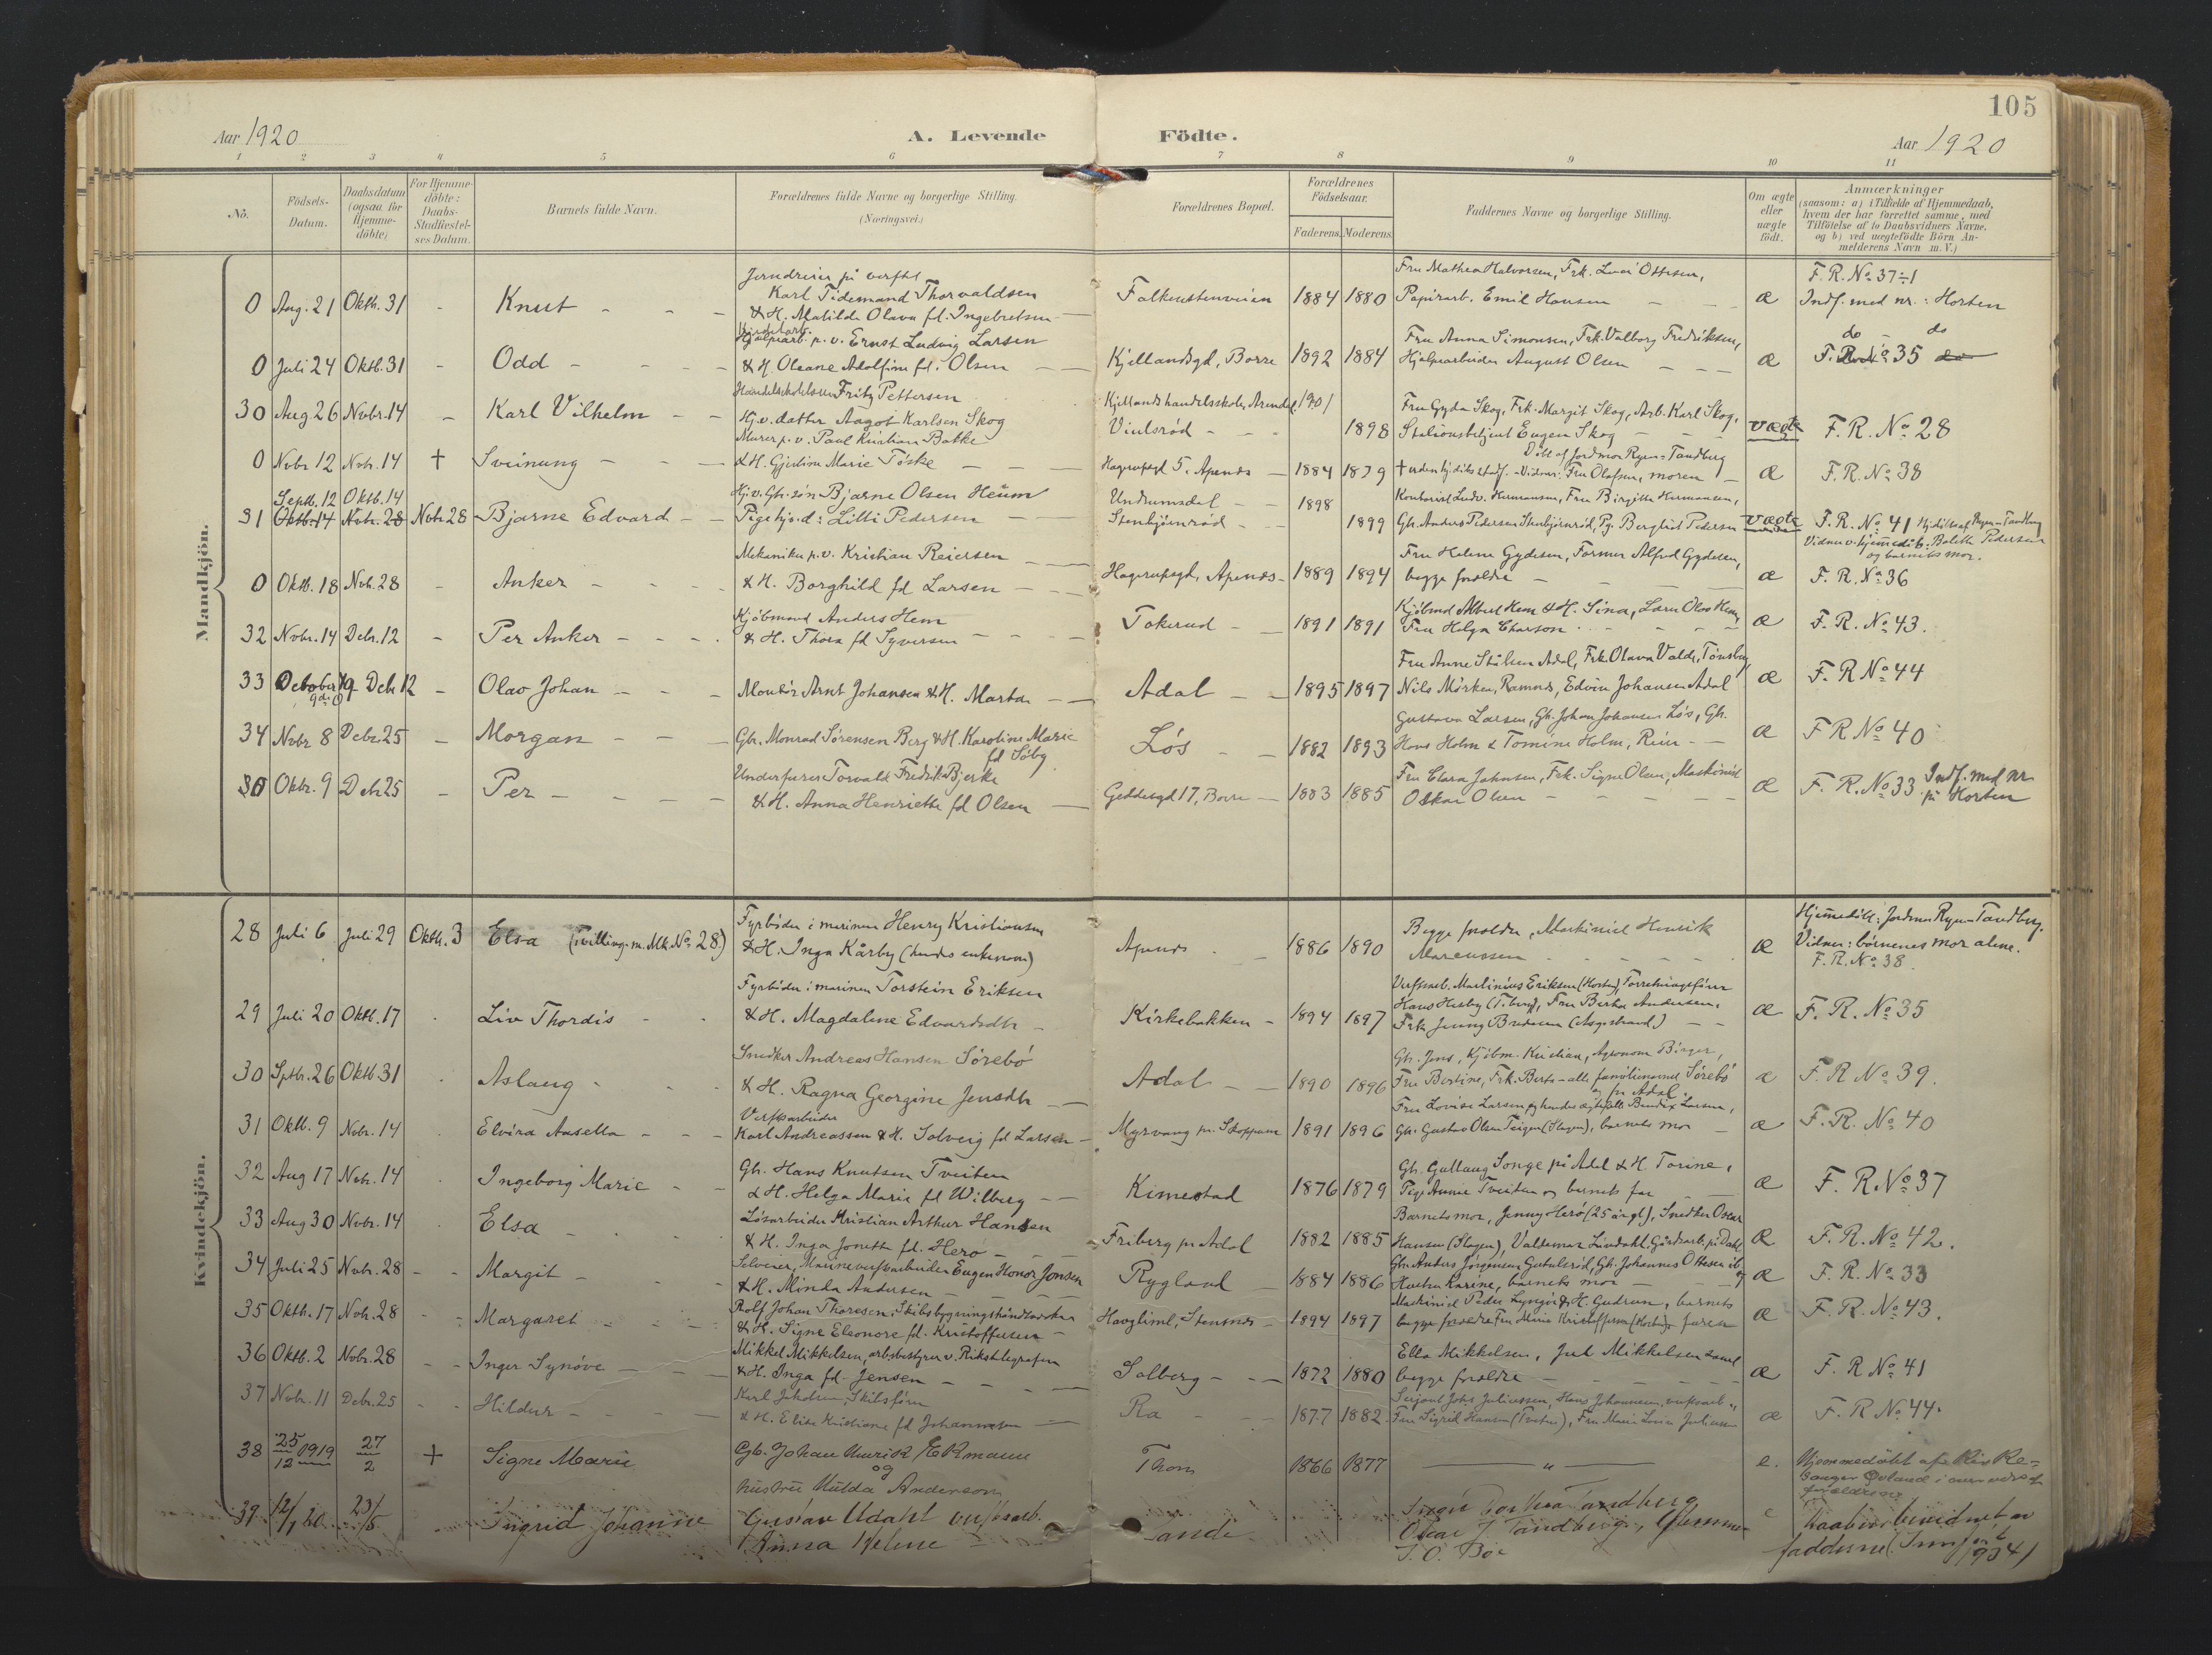 105
Aar 1920 A. Levende Födte. Aar 1920
1 2 3 4 5 6 7 8 9 10 11
No.
Födsels-
Datum.
Daabsdatum
(ogsaa for
Hjemme-
döbte)
For Hjemme-
döbte:
Daabs-
Stadfæstel-
ses Datum.
Barnets fulde Navn.
Forældrenes fulde Navne og borgerlige Stilling.
(Næringsvei.)
Forældrenes Bopæl.
Forældrenes
Födselsaar.
Faderens. Moderens.
Faddernes Navne og borgerlige Stilling.
Om ægte
eller
uægte
födt.
Anmærkninger
(saasom: a) i Tilfælde af Hjemmedaab,
hvem der har forrettet samme, med
Tilföielse af to Daabsvidners Navne.
og b) ved uægtefödte Börn An-
melderens Navn m. V.)
Mandkjön.
Jerndreier på verftet
Karl Tidemand Thorvaldsen
0 Aug. 21 Oktb. 31 - Knut - - -
& H. Matilde Olava fd. Ingebretsen
Falkenstenveien 1884 1880
Fru Mathea Halvorsen, Frk. Ottesen,
Papirarb. Emil Hansen - - æ
F. R. No 37
Indf. med nr. : Horten
Hjelpearb. p. v. Ernst Ludvig Larsen
0 Juli 24 Oktb. 31 - Odd - - - -
& H. Oleane Adolfine fd. Olsen
Kjellandsgd, Borre 1892 1884
Fru Anna Simonsen, Frk. Valborg Fredriksen,
Hjelpearbeider August Olsen - - - æ
do - do
F. R. No 35
Fritz Pettersen
30 Aug 26 Nvbr. 14 - Karl Vilhelm - -
Hj.v. datter Aagot Karlsen Skog
Kjellands handelsskole, Arendal 1901
Vinlsröd - - - 1898
Fru Gyda Skog, Frk. Margit Skog, Arb. Karl Skog,
Stationsbetjent Eugen Skog uægte
F. R. No 28
Murer p. v. Paul Kristian Batke
0 Nvbr 12 Nvb. 14 † Sveinung - - -
& H. Gjertine Marie Töske
Hagerupsgd 5, Apenæs - 1884 1879
Döbt af Jordmor Ryen-Tandberg
Fru Olafsen, moren - æ
F. R. No 38
Septb. 12 Oktb. 14
31 Oktb. 14 Nvb. 28 Nvbr 28 Bjarne Edvard - -
Hj.v. Gb. sön Bjarne Olsen Heum
Pige hjv.d: Lilli Pedersen
Undrumsdal - - 1898
Stenbjönnröd - - 1899
Kontorist Ludv. Hermansen, Fru Birgitte Hermansen,
Gb. Anders Pedersen Stenbjönröd, Pg. Bergliot Pedersen uægte
F. R. No 41 Hj.döbt af Ryen-Tandberg
Vidner v. hjemmedåb: Bolette Pedersen
og barnets mor.
Mekaniker p.v. Kristian Reiersen
0 Oktb. 18 Nvb. 28 - Anker - - -
& H. Borghild fd Larsen
Hagerupsgd, Apenæs - 1889 1894
Fru Helene Gydesen, Former Alfred Gydesen,
begge foreldre - æ
F. R. No 36
Kjöbmand Anders Hem
32 Nvbr. 14 Debr. 12 - Per Anker - - -
& H. Thora fd Syversen
Tokerud - - 1891 1891
Kjöbmd Albert Hem & H. Sina, Olav Hem,
Fru Helga - - - æ
F. R. No 43.
33 October 19 Debr 12 - Olav Johan - - -
9de
Montör Arnt Johansen & H. Marta -
Adal - - 1895 1897
Fru Anne Stålsen Adal, Frk. Olava Valdr, Tönsberg,
Nils Mörken, Ramnes, Edvin Johansen Adal æ
F. R No 44
34 Nvbr 8 Debr. 25 - Morgan - - -
Gb. Monrad Sörensen Berg & H. Karoline Marie
fd Söby
Lös - - 1882 1893
Gustava Larsen, Gb. Johan Johansen Lös, Gb.
Hans Holm & Tomine Holm, Reir - - æ
F R No 40
0 Oktbr. 9 Debr 25 - Per - - - -
Underfurer Torvald Fredrik Bjerke
& H. Anna Henriette fd Olsen
Geddesgd 17, Borre - 1883 1885
Fru Clara Johnsen, Frk. Signe Olsen, Maskinist
Oskar Olsen - - - æ
F. R. No 33 Indf. med nr
på Horten
Kvindekjön.
28 Juli 6 Juli 29 Oktb. 3 Elsa (tvilling m. Mk. No 28)
Fyrböder i marinen Henry Kristiansen
& H. Inga Kårby (hendes enkenavn)
Apenæs - - 1886 1890
Begge foreldre, Maskinist Henrik
Marcussen æ
Hjemmedöbt: Jordmor Ryen-Tandberg.
Vidner: börnenes mor alene.
F. R. No 38.
29 Juli 20 Oktb. 17 . Liv Thordis - -
Fyrböder i marinen Torstein Eriksen
& H. Magdalene Edvardsdtr -
Kirkebakken - 1894 1897
Verftsarb. Martinius Eriksen (Horten), Forretningsförer
Hans Hesby (T.berg), Fru Berta Andersen,
Frk Jenny (Åsgrstrand) - - æ
F. R. No 35
30 Sptbr. 26 Oktb. 31 . Aslaug - - -
Snedker Andreas Hansen Sörebö
& H. Ragna Georgine Jensdtr
Adal - - 1890 1896
Gb. Jens, Kjöbm. Kristian, Agronom Birger,
Fru Bertine, Frk. Berta - alle familienavnet Sörebö
og fra Adal æ
F. R No 39.
31 Oktb. 9 Nvbr. 14 . Elvira Ansella - - -
Verftsarbeider
Karl Andreassen & H. Solveig fd Larsen -
Myrvang pr. Skoppum 1891 1896
Fru Lovise Larsen og hendes egtefelle Bendix Larsen,
Gb. Gustav Olsen Teigen (Slagen), barnets mor - æ
F. R. No 40
32 Aug 17 Nvb. 14 . Ingeborg Marie - -
Gb. Hans Knutsen Tveiten
& H. Helga Marie fd Wilberg - -
Kimestad 1876 1879
Gb. Gullaug Songe på Adal & H. Torine,
Pige Annie Tveiten og barnets far æ
F. R No 37
33 Aug 30 Nvbr. 14 . Elsa - - -
Lösarbeider Kristian Arthur Hansen
& H. Inga Jonette fd. Herö -
Friberg pr Adal 1882 1885
Barnets mor, Jenny Herö (25 år gl), Snedker Oscar
Hansen (Slagen), Valdemar Lindahl, Gårdsarb. på Dahl æ
F. R. No 42.
34 Juli 25 Nvb. 28 - - Margit - - -
Selveier, Marineverftsarbeider Eugen Honor Jonsen
& H. Minda Andersen
Rygland - 1884 1886
Gb. Anders Jörgensen Gutulsröd, Gb. Johannes Ottesen ib og
Karine, barnets mor - - æ
F. R. No 33
35 Oktb. 17 Nvb. 28 - - Margaret - - -
Rolf Johan Thoresen, Skibsbygningshåndverker
& H. Signe Eleonore fd. Kristoffersen -
Haugliml., Stensnæs - 1894 1897
Maskinist Peder Lyngör & H. Gudrun, barnets
begge foreldre Fru Minie Kristoffersen (Horten) æ
F. R. No 43.
36 Oktb. 2 Nvbr. 28 - - Inger Synöve - - -
Mikkel Mikkelsen, arbsbestyrer v. Rikstelegrafen
& H. Inga fd. Jensen - -
Solberg - - 1872 1880
Ella Mikkelsen, Juel Mikkelsen samt
begge foreldre æ
F. R No 41
37 Nvbr. 11 Debr. 25 - - Hildur - - -
Karl Jakobsen, Skibsförer
& H. Elise Kristiane fd Johannesen
Ra - - 1877 1882
Serjant Johs Juliussen, Hans Johannesen, verftsarb.,
Fru Sigrid Hansen (Tveiten), Fru Marie Lovise Juliussen æ
F. R No 44.
38 25/12 1919 27/2 + Signe Marie
Gb. Johan Henrik Ekmann
og
hustru Hulda Anderson
Thom 1866 1877 — " — e.
Hjemmedöbt af
Øvland i nærværelse af
forældrene
39 12/1 20. 23/5 Ingrid Johanne
Gustav Udahl verftsarb.
Anna Helene
Sande
Tandberg
Oscar J Tandberg, Glemmen
T. O. Böe e
Daab bevidnet av
fadderne (Innf. 1934)